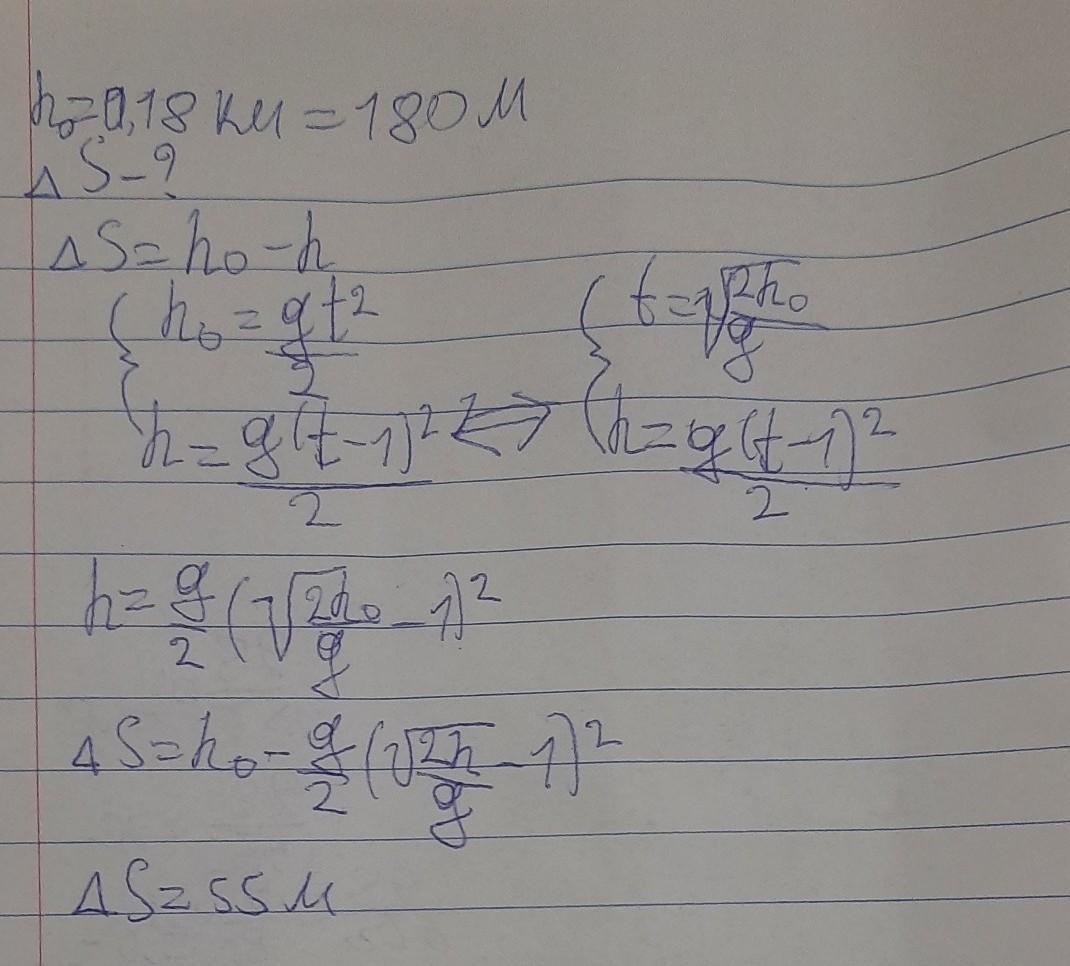 h₀=0,18 км=180 м
ΔS-?
ΔS=h₀-h
{ h₀=gt²/2 { t=√(2h₀/g)
h=g(t-1)²/2 <=> h=g(t-1)²/2
h=g/2(√(2h₀/g)-1)²
ΔS=h₀-g/2(√(2h/g)-1)²
ΔS=55 м